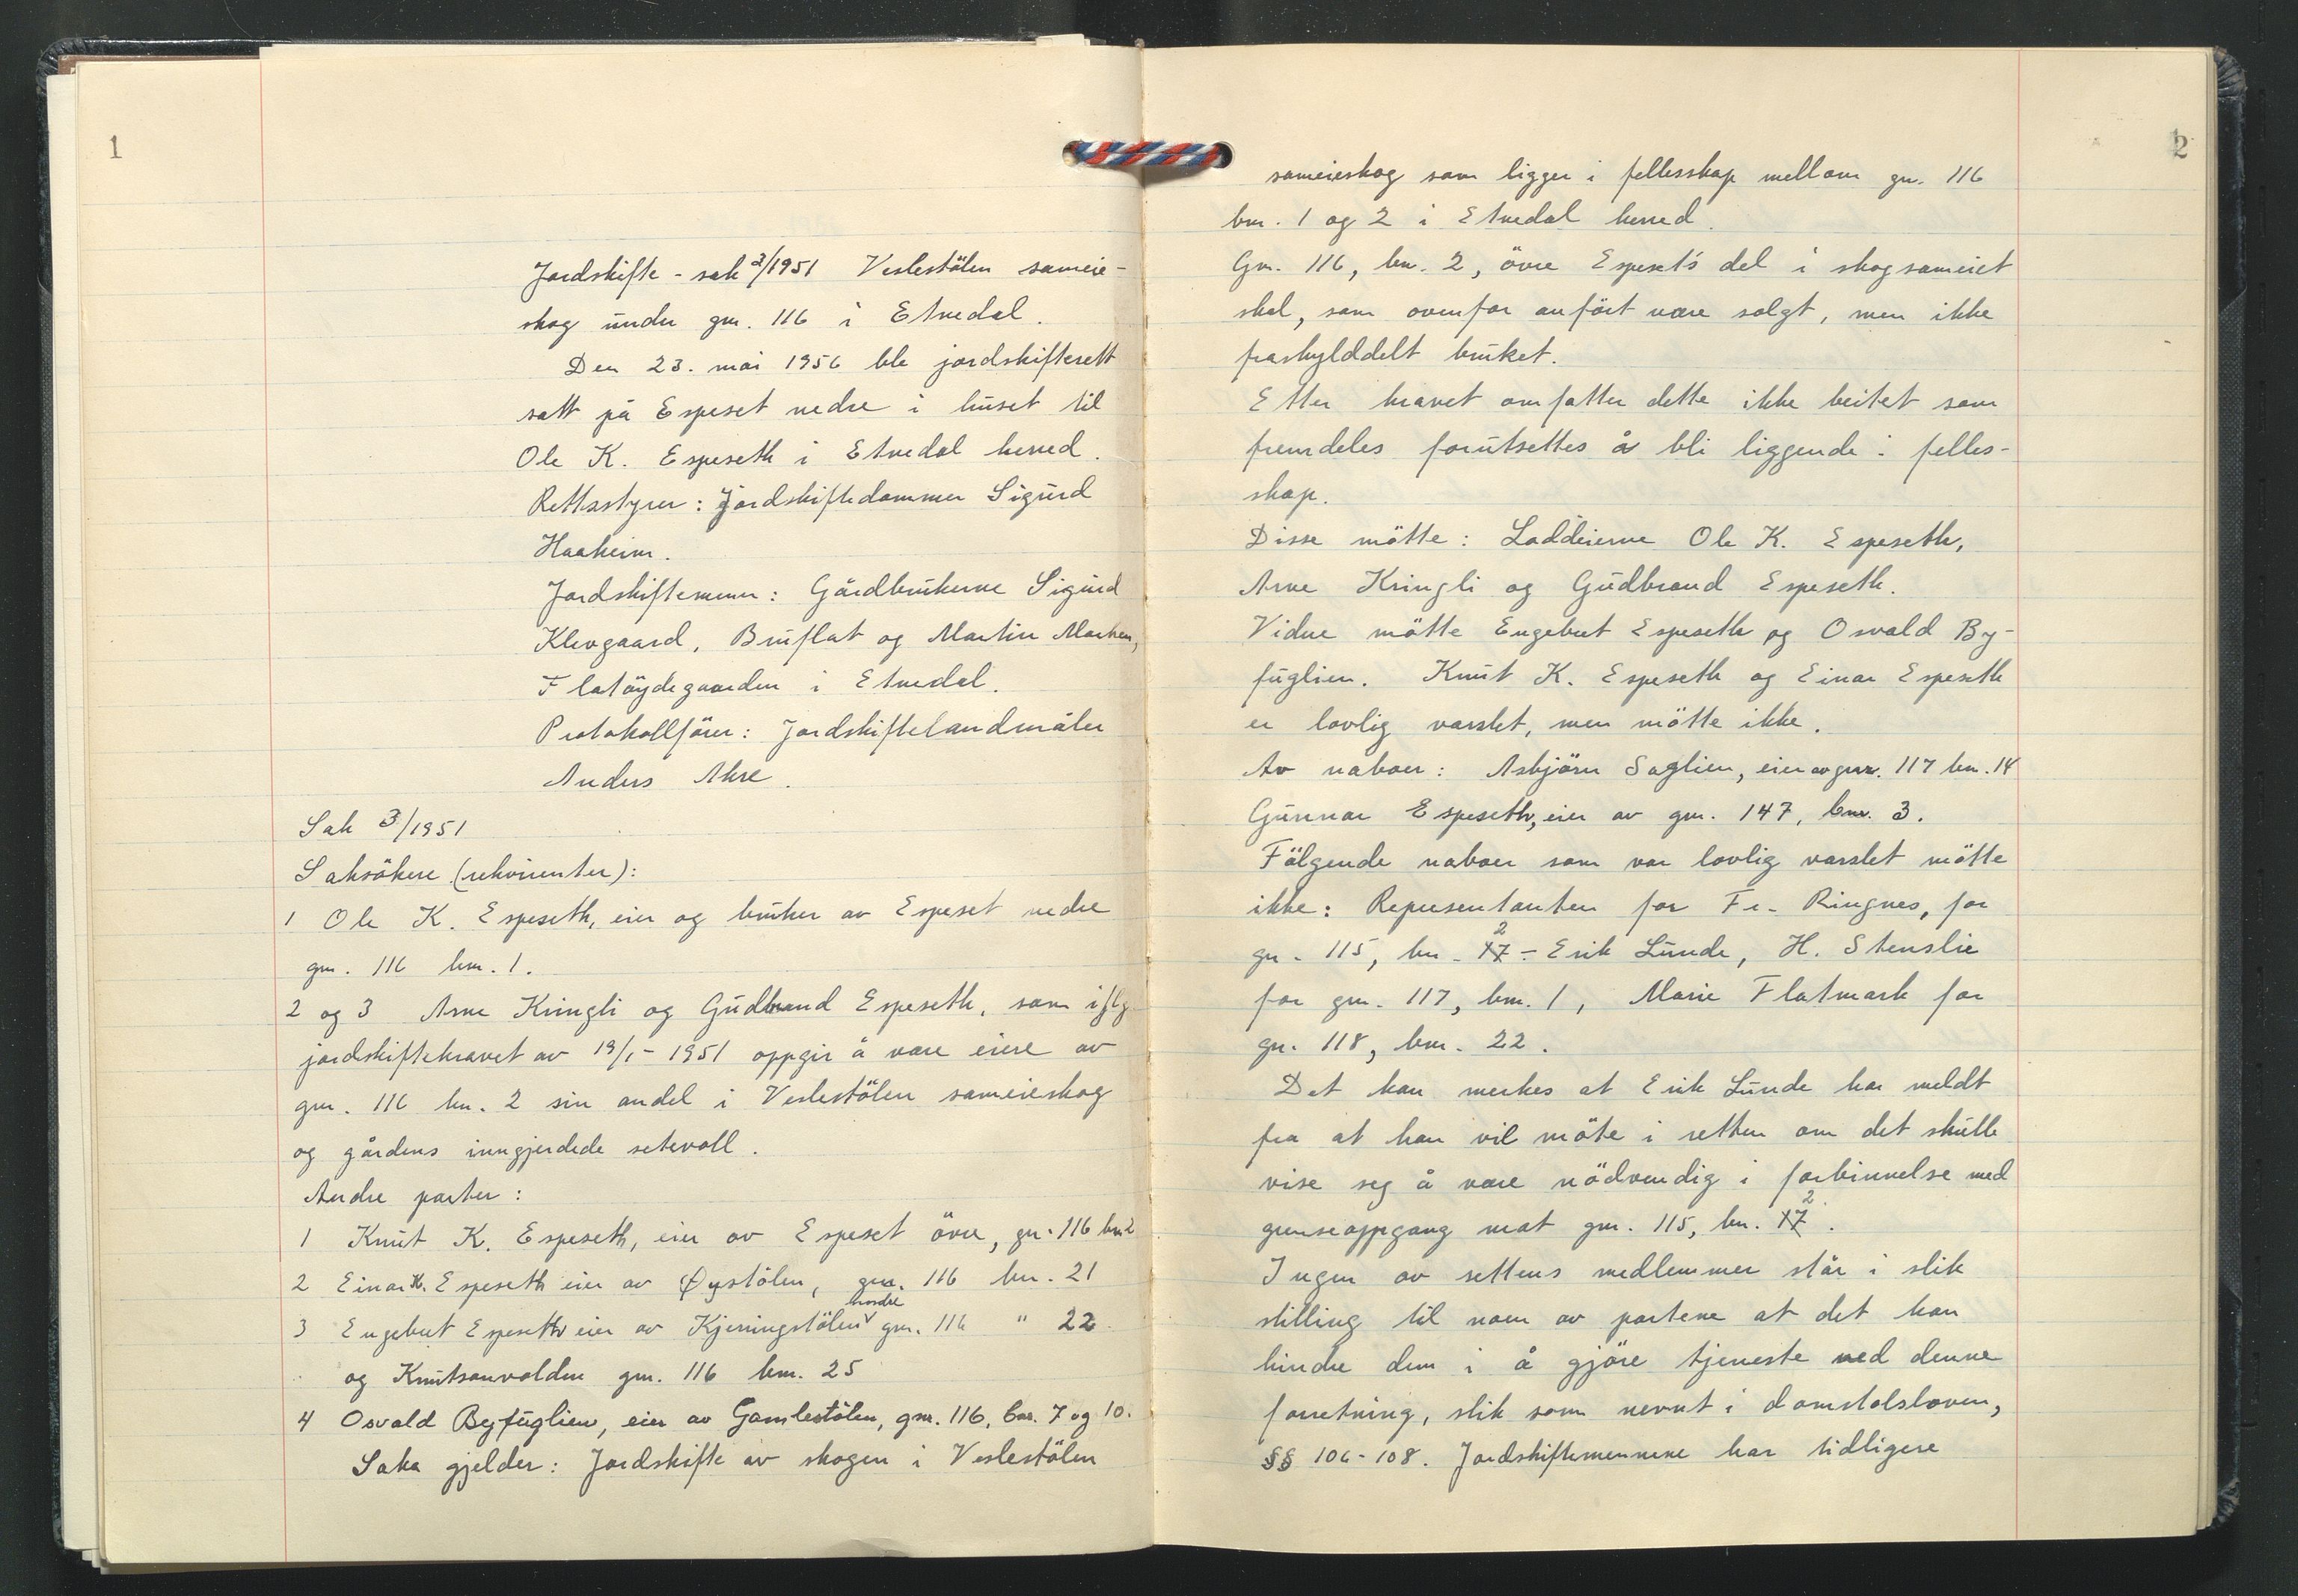 1
Jordskifte-sak 3/1951 Veslestölen sameie-
skog under gnr. 116 i Etnedal.
Den 23. mai 1956 ble jordskifterett
satt på Espeset nedre i huset til
Ole K. Espeseth i Etnedal herred.
Rettsstyrer: Jordskiftedommer Sigurd
Haaheim.
Jordskiftemenn: Gårdbrukerne Sigurd
Klevgaard, Bruflat og Martin Marken,
Flatöydegaarden i Etnedal.
Protokollförer: Jordskiftelandmåler
Anders Akre.
Sak 3/1951
Saksökere (rekvirenter):
1 Ole K. Espeseth, eier og bruker av Espeset nedre
gnr. 116 bnr. 1.
2 og 3 Arne Kringli og Gudbrand Espeseth, som iflg.
jordskiftekravet av 19/1-1951 oppgir å være eiere av
gnr. 116 bnr. 2 sin andel i Veslestölen sameieskog
og gårdens inngjerdede setevoll.
Andre parter:
1 Knut K. Espeseth, eier av Espeset övre, gnr. 116 bnr 2
2 Einar K. Espeseth eier av Øystölen, gnr. 116 bnr. 21
3 Engebret Espeseth eier av Kjerringstölen nordre gnr. 116 " 22
og Knutsonvolden gnr. 116 bnr. 25
4 Osvald Byfuglien, eier av Gamlestölen, gnr. 116, bnr. 7 og 10.
Saka gjelder: Jordskifte av skogen i Veslestölen
2
sameieskog som ligger i fellesskap mellom gnr. 116
bnr. 1 og 2 i Etnedal herred.
Gnr. 116, bnr. 2, övre Espeset's del i skogsameiet
skal, som ovenfor anfört være solgt, men ikke
fraskylddelt bruket.
Etter kravet omfatter dette ikke beitet som
fremdeles forutsettes å bli liggende i felles-
skap.
Disse mötte: Loddeierne Ole K. Espeseth,
Arne Kringli og Gudbrand Espeseth.
Videre mötte Engebret Espeseth og Osvald By-
fuglien. Knut K. Espeseth og Einar Espeseth
er lovlig varslet, men mötte ikke.
Av naboer: Asbjörn Saglien, eier av gnr. 117 bnr. 14
Gunnar Espeseth, eier av gnr. 147, bnr. 3.
Fölgende naboer som var lovlig varslet mötte
ikke: Representanten for Fr. Ringnes, for
gnr. 115, bnr. 17 2 - Erik Lunde, H. Stenslie
for gnr. 117, bnr. 1, Marie Flatmark for
gnr. 118, bnr. 22.
Det kan merkes at Erik Lunde har meldt
fra at han vil möte i retten om det skulle
vise seg å være nödvendig i forbinnelse med
grenseoppgang mot gnr. 115, bnr. 17 2.
Ingen av rettens medlemmer står i slik
stilling til noen av partene at det kan
hindre dem i å gjöre tjeneste ved denne
forretning, slik som nevnt i domstolsloven,
§§ 106-108. Jordskiftemennene har tidligere